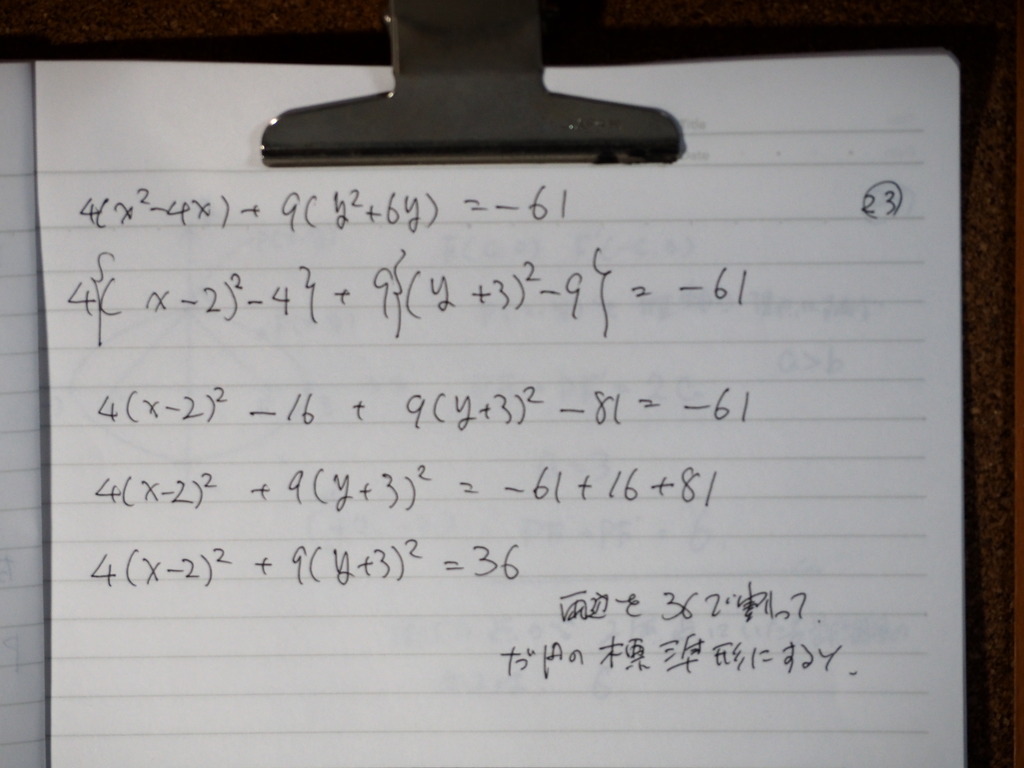 4(x²-4x) + 9(y²+6y) = -61
e3
4{(x-2)²-4} + 9{(y+3)²-9} = -61
4(x-2)² -16 + 9(y+3)² -81 = -61
4(x-2)² + 9(y+3)² = -61+16+81
4(x-2)² + 9(y+3)² = 36
両辺を36で割って.
だ円の標準形にすると.